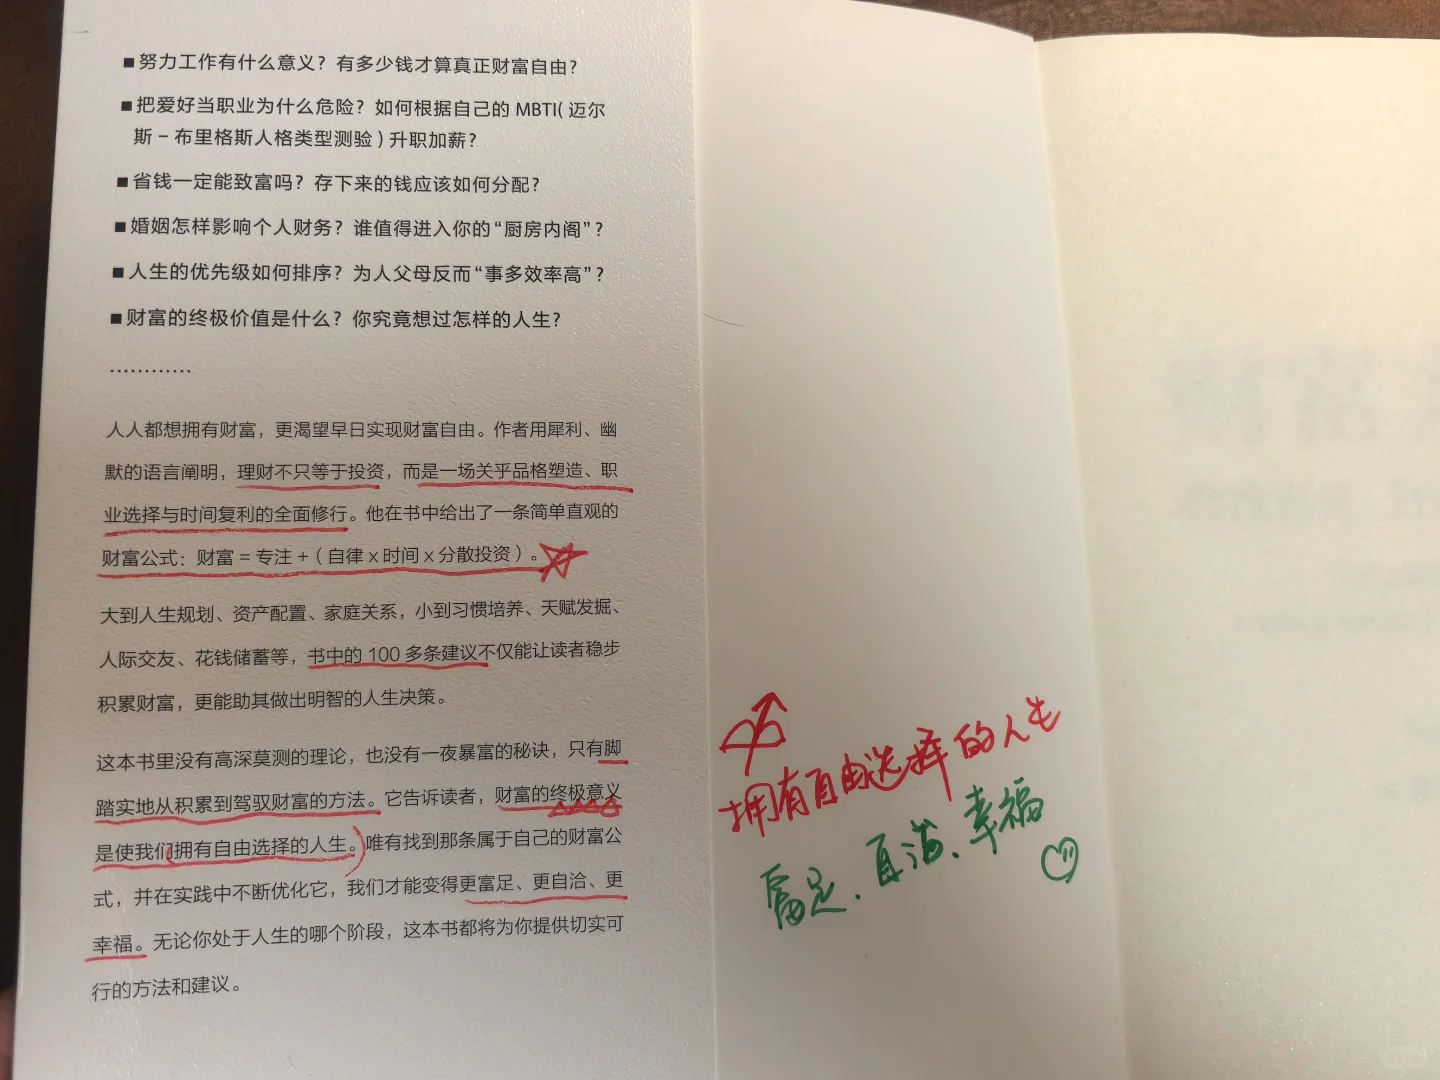 ■努力工作有什么意义？有多少钱才算真正财富自由？
■把爱好当职业为什么危险？如何根据自己的 MBTI( 迈尔
斯－布里格斯人格类型测验 ) 升职加薪？
■省钱一定能致富吗？存下来的钱应该如何分配？
■婚姻怎样影响个人财务？谁值得进入你的“厨房内阁”？
■人生的优先级如何排序？为人父母反而“事多效率高”？
■财富的终极价值是什么？你究竟想过怎样的人生？
…………
人人都想拥有财富，更渴望早日实现财富自由。作者用犀利、幽
默的语言阐明，理财不只等于投资，而是一场关乎品格塑造、职
业选择与时间复利的全面修行。他在书中给出了一条简单直观的
财富公式：财富 = 专注 +（自律 x 时间 x 分散投资）。
大到人生规划、资产配置、家庭关系，小到习惯培养、天赋发掘、
人际交友、花钱储蓄等，书中的 100 多条建议不仅能让读者稳步
积累财富，更能助其做出明智的人生决策。
这本书里没有高深莫测的理论，也没有一夜暴富的秘诀，只有脚
踏实地从积累到驾驭财富的方法。它告诉读者，财富的终极意义
是使我们拥有自由选择的人生。唯有找到那条属于自己的财富公
式，并在实践中不断优化它，我们才能变得更富足、更自洽、更
幸福。无论你处于人生的哪个阶段，这本书都将为你提供切实可
行的方法和建议。
拥有自由选择的人生
富足、自洽、幸福